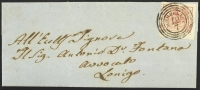 All'Eccell. Signore
Il Sig. Antonio Dr. Fontana
Avvocato
Lonigo